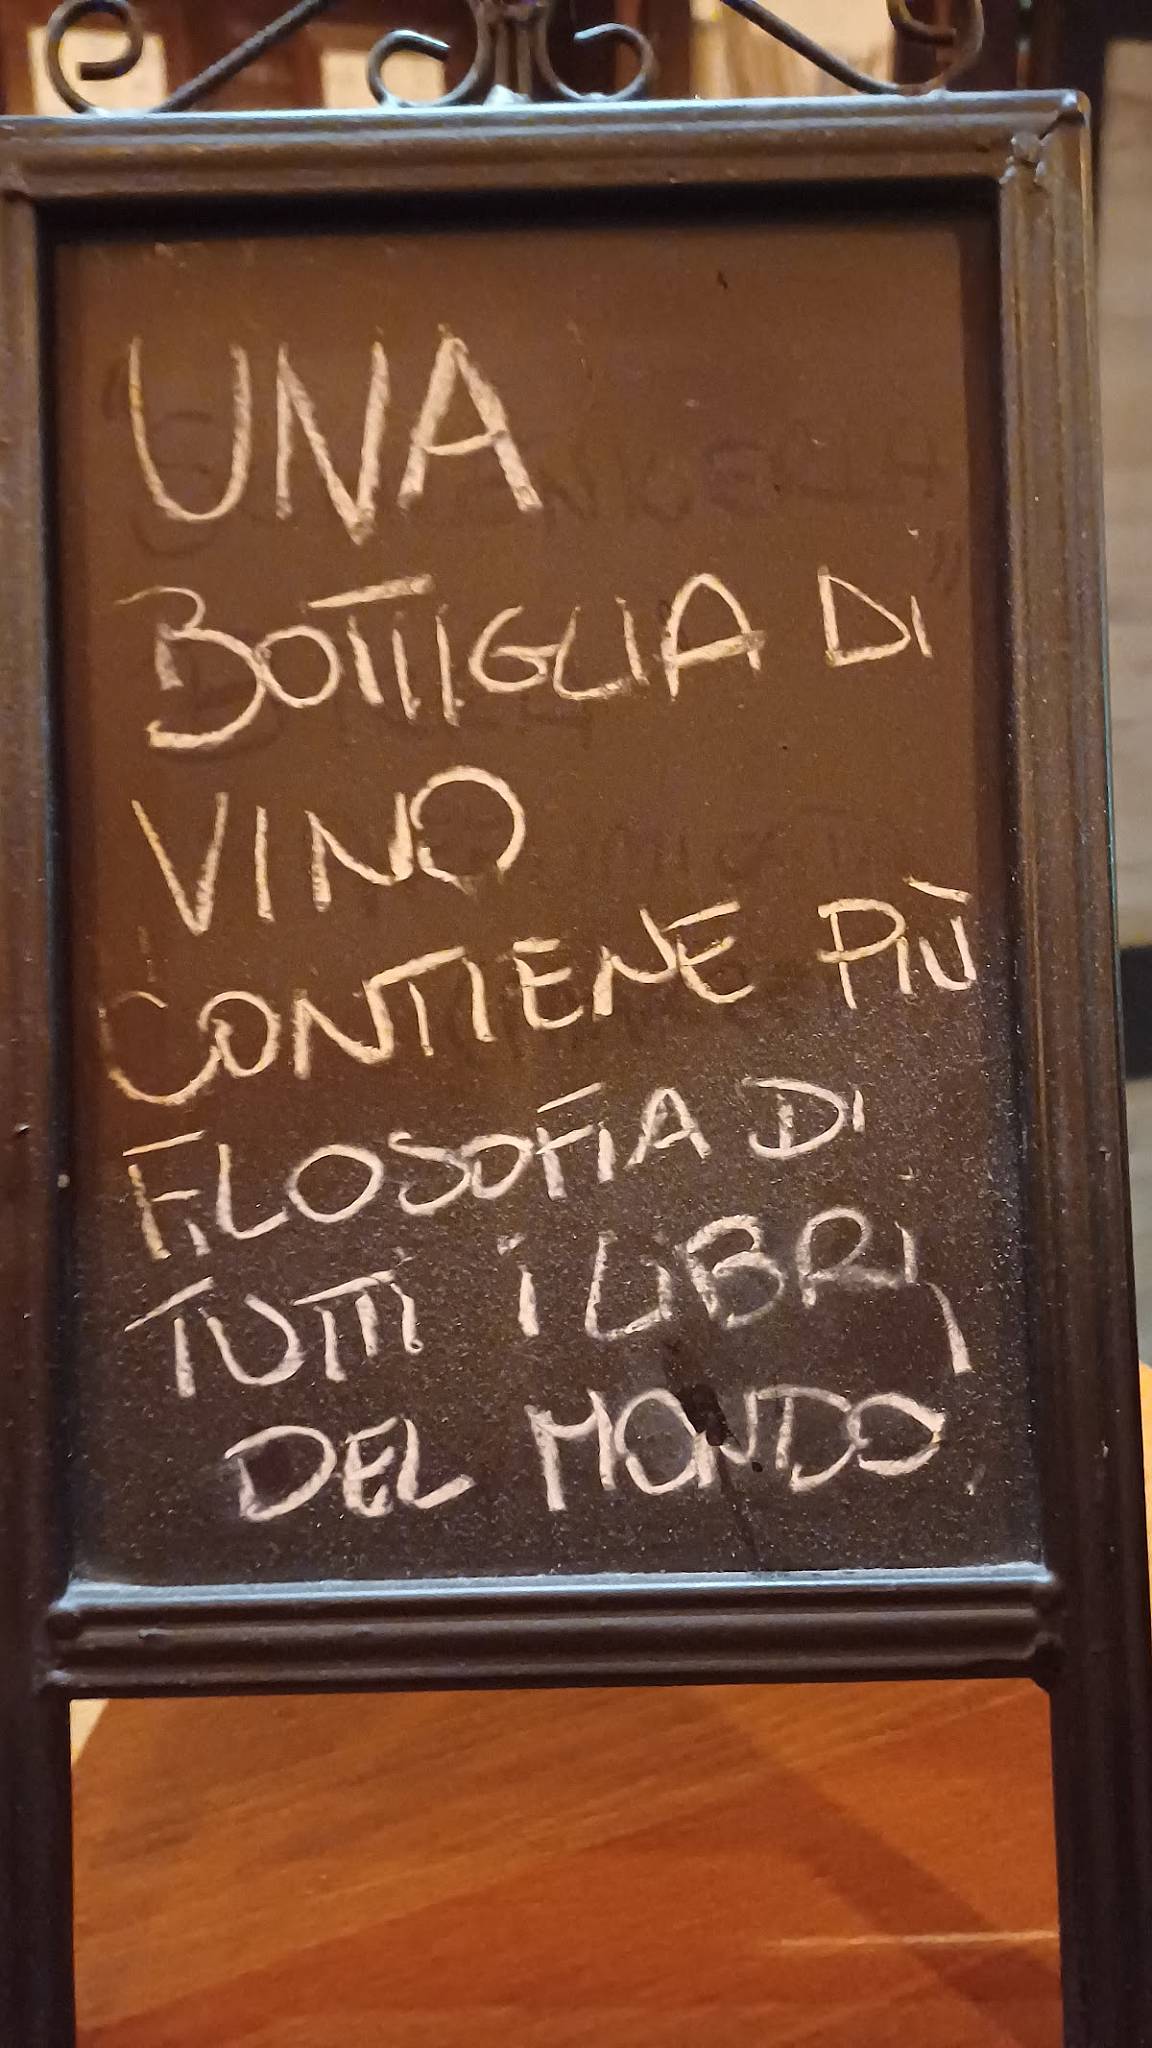 UNA
BOTTIGLIA DI
VINO
CONTIENE PIÙ
FILOSOFIA DI
TUTTI I LIBRI
DEL MONDO